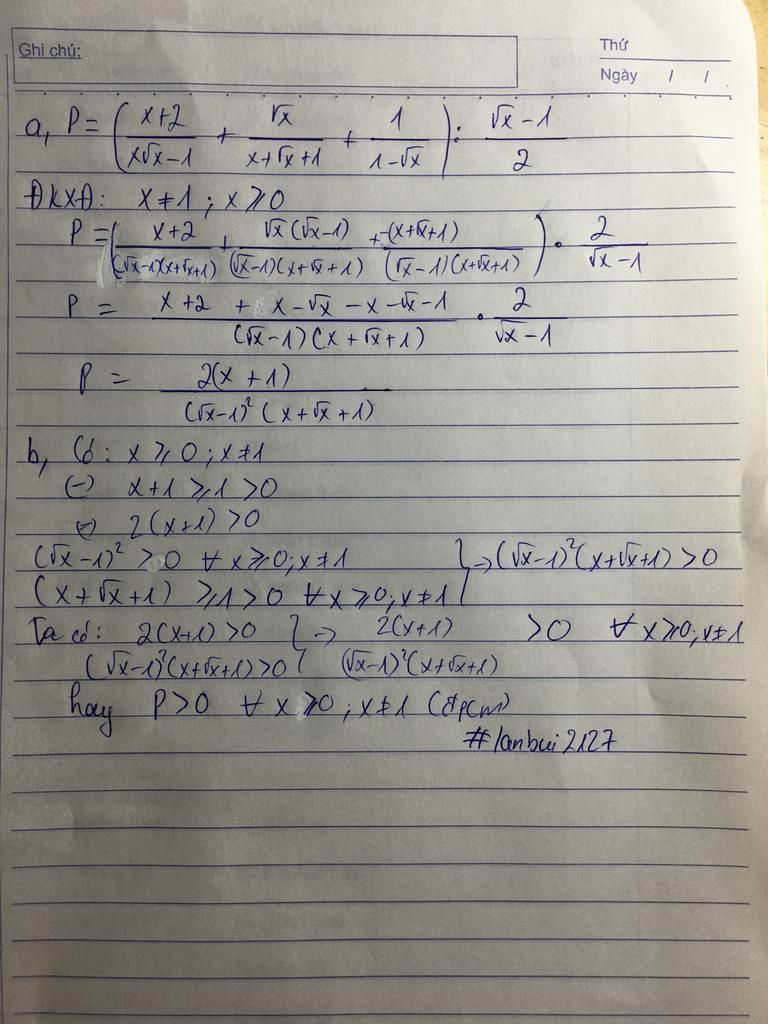 Ghi chú:
Thứ
Ngày / /
a, P = ( (x+2)/(x√x−1) + √x/(x+√x+1) + 1/(1−√x) ) : (√x−1)/2
ĐKXĐ: x≠1 ; x≥0
P = ( (x+2)/((√x−1)(x+√x+1)) + √x(√x−1)/((√x−1)(x+√x+1)) + −(x+√x+1)/((√x−1)(x+√x+1)) ) . 2/(√x−1)
P = (x+2 + x−√x −x −√x−1)/((√x−1)(x+√x+1)) . 2/(√x−1)
P = 2(x+1)/((√x−1)²(x+√x+1))
b, Có: x≥0 ; x≠1
(=) x+1 ≥1 >0
(=) 2(x+1) >0
(√x−1)² >0 ∀x≥0; x≠1 } → (√x−1)²(x+√x+1) >0
(x+√x+1) ≥1>0 ∀x≥0; x≠1
Ta có: 2(x+1)>0 } → 2(x+1)/((√x−1)²(x+√x+1)) >0 ∀x≥0; x≠1
(√x−1)²(x+√x+1)>0
hay P>0 ∀x≥0 ; x≠1 (đpcm)
#lanbui2127